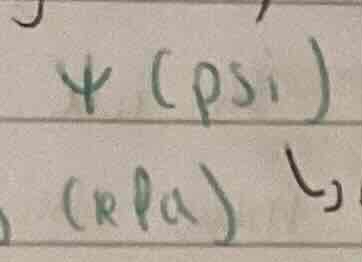 Ψ (psi)
(kPa)